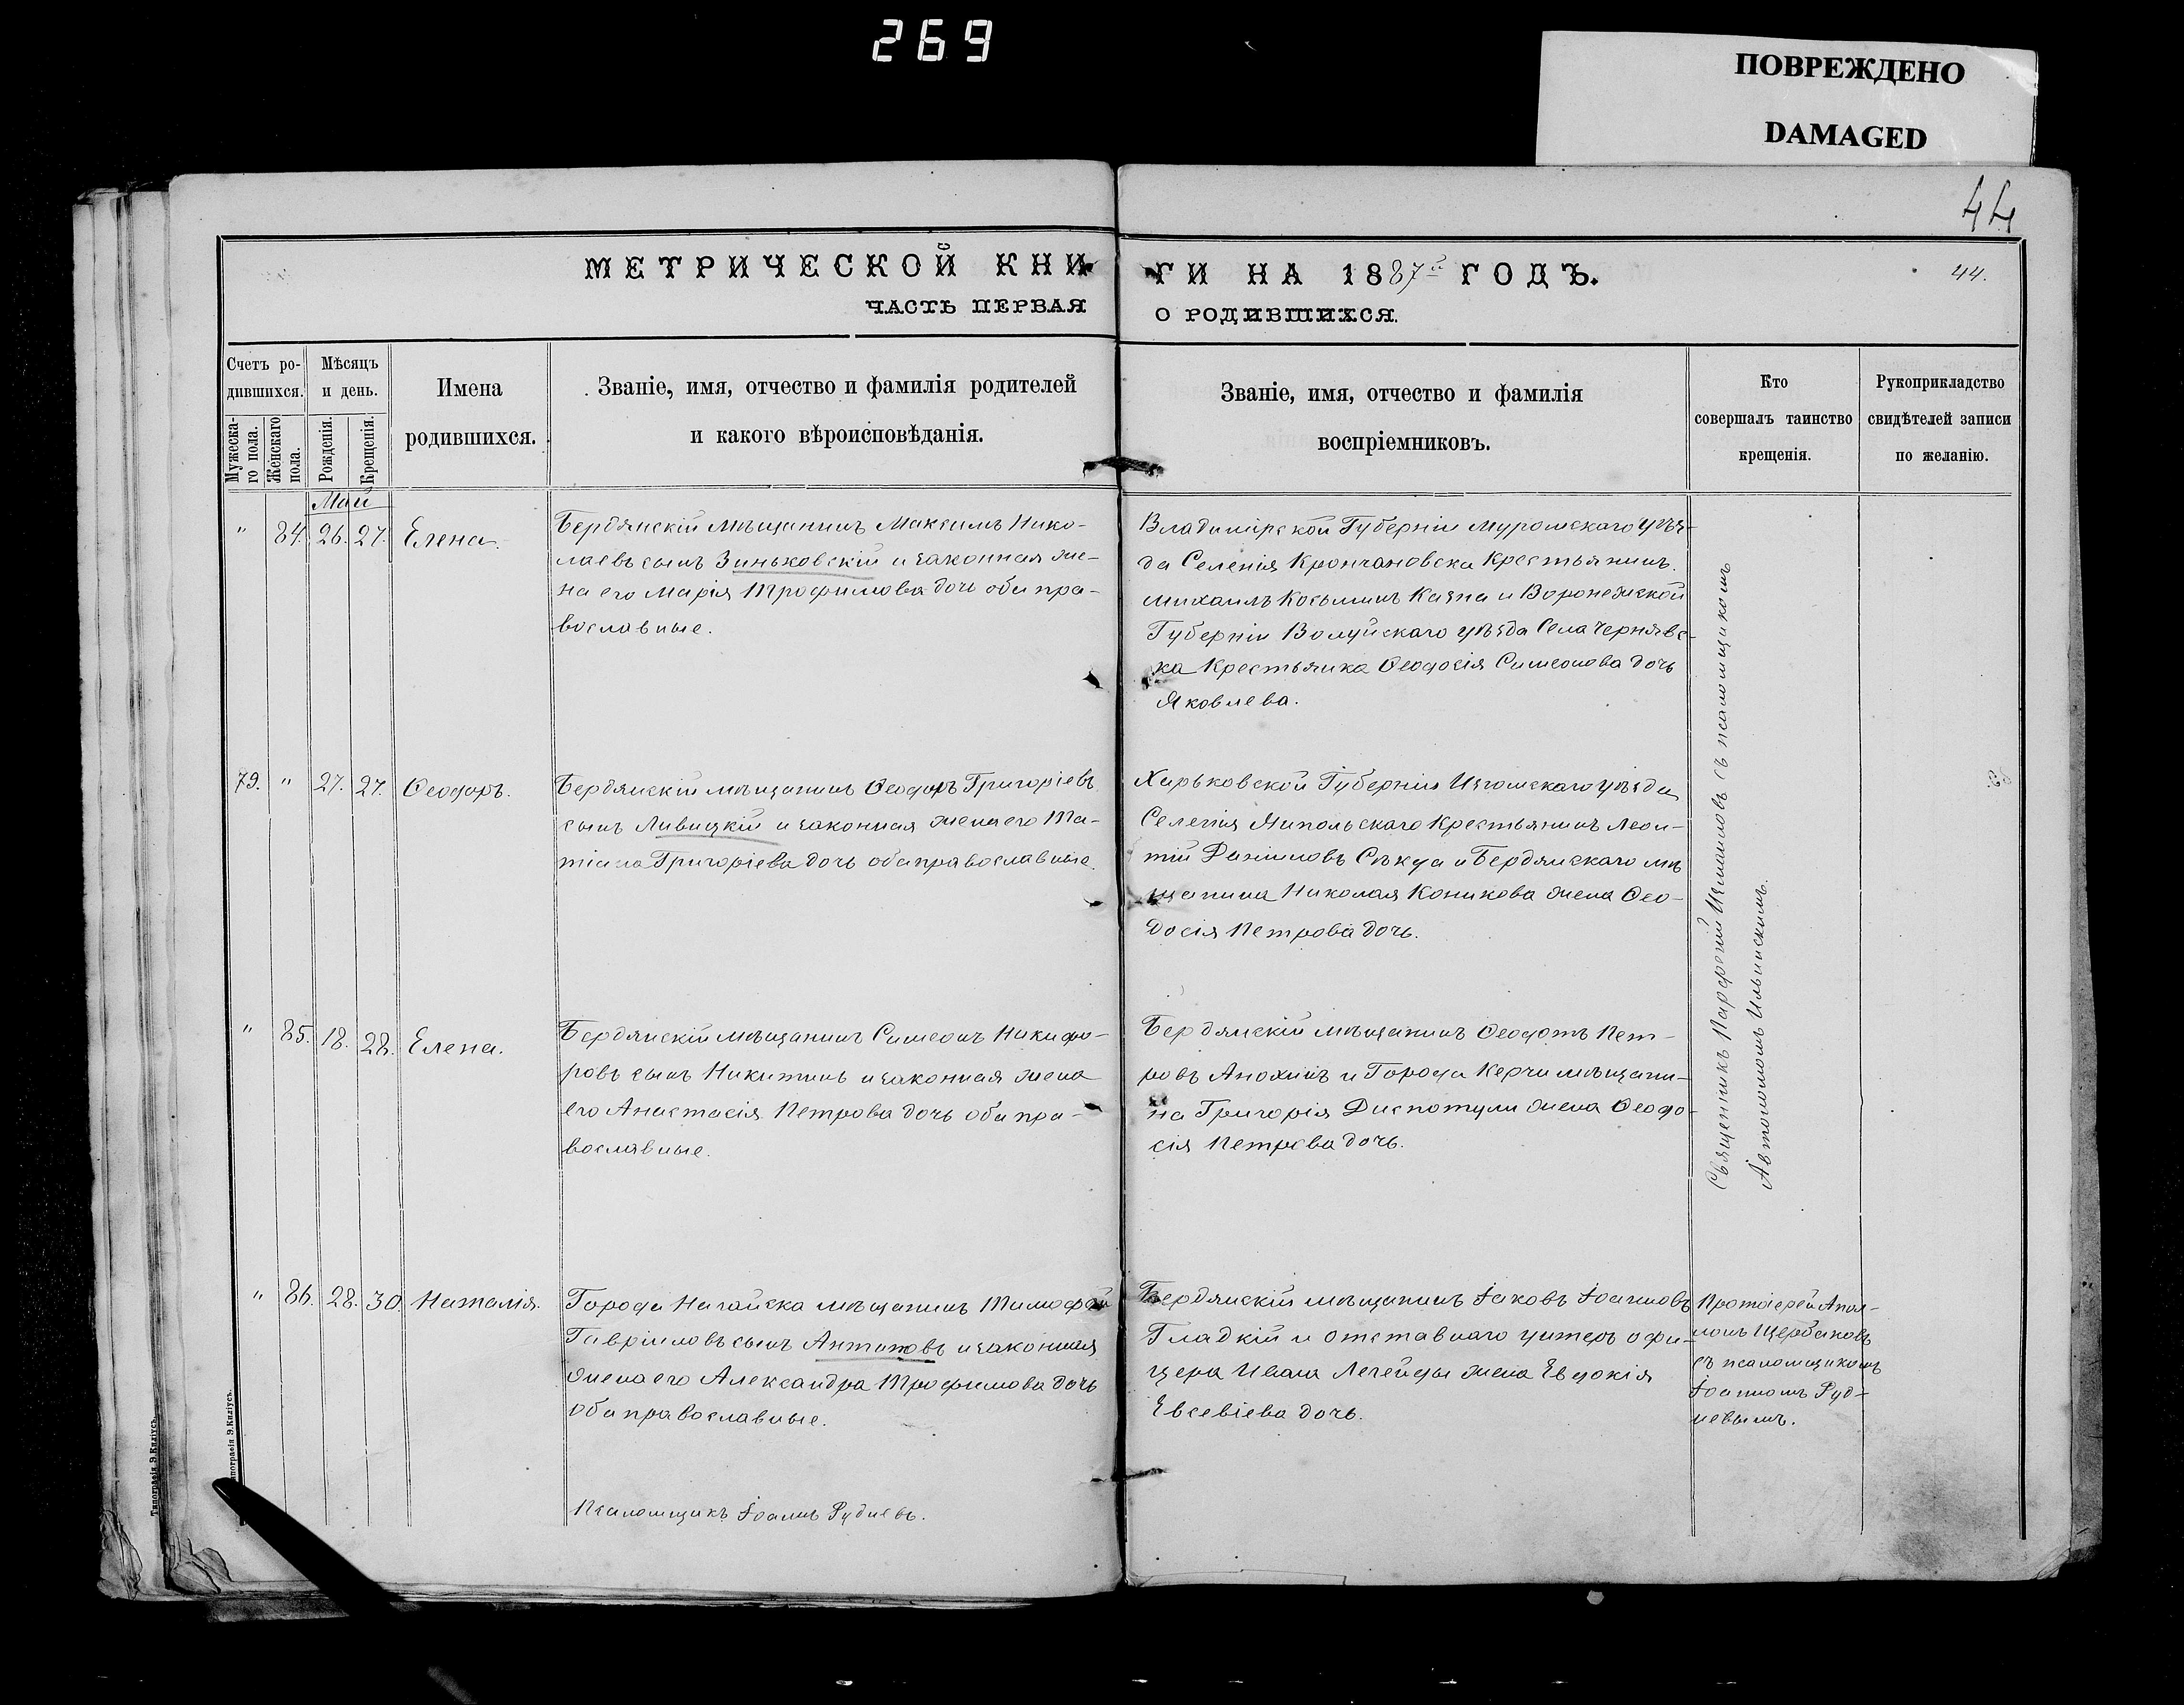 269
ПОВРЕЖДЕНО
DAMAGED
44
МЕТРИЧЕСКОЙ КНИ
ГИ НА 1887й ГОДЪ.
44.
ЧАСТЬ ПЕРВАЯ
О РОДИВШИХСЯ.
Счетъ ро-
дившихся.
Мужеска-
го пола.
Женскаго
пола.
Мѣсяцъ
и день.
Рожденія.
Крещенія.
Имена
родившихся.
Званіе, имя, отчество и фамилія родителей
и какого вѣроисповѣданія.
Званіе, имя, отчество и фамилія
воспріемниковъ.
Кто
совершалъ таинство
крещенія.
Рукоприкладство
свидѣтелей записи
по желанію.
Май
" 84. 26. 27. Елена.
Бердянскій мѣщанинъ Максимъ Нико-
лаевъ сынъ Зиньковскій и законная же-
на его Марія Трофимова дочь оба пра-
вославные.
Владимірской Губерніи Муромскаго уѣз-
да Селенія Крестьянинъ
Михаилъ Косьминъ и Воронежской
Губерніи Волуйскаго уѣзда Села Чернявс-
ка Крестьянка Ѳеодосія Симеонова дочь
Яковлева.
79. " 27. 27. Ѳеодоръ.
Бердянскій мѣщанинъ Ѳеодоръ Григоріевъ
сынъ Ливицкій и законная жена его Та-
тіана Григоріева дочь оба православные.
Харьковской Губерніи Изюмскаго уѣзда
Селенія Ямпольскаго Крестьянинъ Леон-
тій Даніиловъ и Бердянскаго мѣ
щанина Николая Коникова жена Ѳео-
досія Петрова дочь.
" 85. 18. 28. Елена.
Бердянскій мѣщанинъ Симеонъ Никифо-
ровъ сынъ Никитинъ и законная жена
его Анастасія Петрова дочь оба пра-
вославные.
Бердянскій мѣщанинъ Ѳеодотъ Пет-
ровъ Анохинъ и Города Керчи мѣщани-
на Григорія Диспотули жена Ѳеодо-
сія Петрова дочь.
Священникъ Парѳеній Измаиловъ съ псаломщикомъ
Автономомъ Ильинскимъ.
" 86. 28. 30 Наталія.
Города Нагайска мѣщанинъ Тимофей
Гавріиловъ сынъ Антиповъ и законная
жена его Александра Трофимова дочь
оба православные.
Бердянскій мѣщанинъ Іаковъ Іоанновъ
Гладкій и отставнаго унтеръ офи-
цера Ивана Легейды жена Евдокія
Евсевіева дочь.
Протоіерей Апол-
лонъ Щербаковъ
съ псаломщикомъ
Іоанномъ Руд-
невымъ.
Псаломщикъ Іоаннъ Рудневъ.
Типографія Э.Килiусъ.
Типографія Э.Килiусъ.